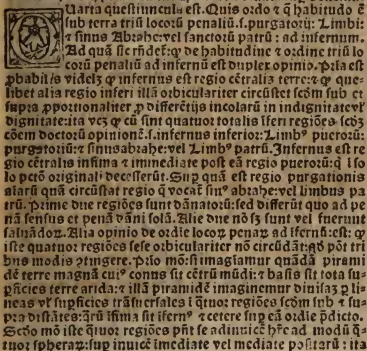 Uarta questiuncul. est. Quis ordo ⁊ q̄ habitudo ē
sub terra triū locorū penaliū .s. purgatorij: Limbi:
⁊ sinus Abrahe: vel sanctorū patrū: ad infernum.
Ad quā sic r̄ndet̄: ꝙ de habitudine ⁊ ordine triū lo
corū penaliū ad infernū est duplex opinio. Prīa est
ꝓbabil̓is videlz ꝙ infernus est regio cētralis terre: ⁊ ꝙ que-
libet alia regio inferi illā orbiculariter circūstet scd̄m sub et
supra ꝓportionaliter ꝓ differētijs incolarū in indignitate vl̓
dignitate: ita vcz ꝙ cū sint quatuor totalis īferi regiões scdz
cōem doctorū opinionē .s. infernus inferior: Limbꝰ puerorū:
purgatoriū: ⁊ sinus abrahe: vel Limbꝰ patrū. Infernus est re
gio cētralis infima ⁊ immediate post eā regio puerorū: q̄ i so
lo pctō originali decesserūt. Sup̱ quā est regio purgationis
aīarū quā circūstat regio q̄ vocat̄ sinꝰ abrahe: vel limbus pa
trū. Prime due regiões sunt dānatorū: sed differūt quo ad pe
nā sensus et penā dāni solā. Alie due nō sz sunt vel fuerunt
saluādoꝝ. Alia opinio de ordīe locoꝝ penaꝝ ad īfernū: est: ꝙ
iste quatuor regiões sese orbiculariter nō circūdāt: qd̄ pōt tri
bus modis ꝯtingere. Prīo mō: si imagiamur quādā pirami
dē terre magnā cuiꝰ conus sit cētrū mūdi: ⁊ basis sit tota su-
ꝑficies terre arida: ⁊ illā piramidē imaginemur diuisaꝫ ꝑ li
neas vl̓ suꝑficies trāsuersales i q̄tuor regiões scd̄m sub ⁊ su-
pra distātes: q̄rū īfima sit īfernꝰ ⁊ cetere sup̱ eā ordīe p̄dicto.
Scdō mō iste q̄tuor regiões pn̄t se adinuicē hr̄e ad modū q̄-
tuor spheraꝝ: sup̱ inuicē īmediate vel mediate positarū: ita